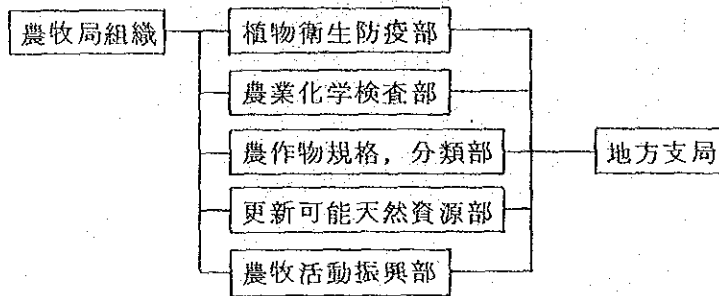 農牧局組織
植物衛生防疫部
農業化学検査部
農作物規格，分類部
更新可能天然資源部
農牧活動振興部
地方支局